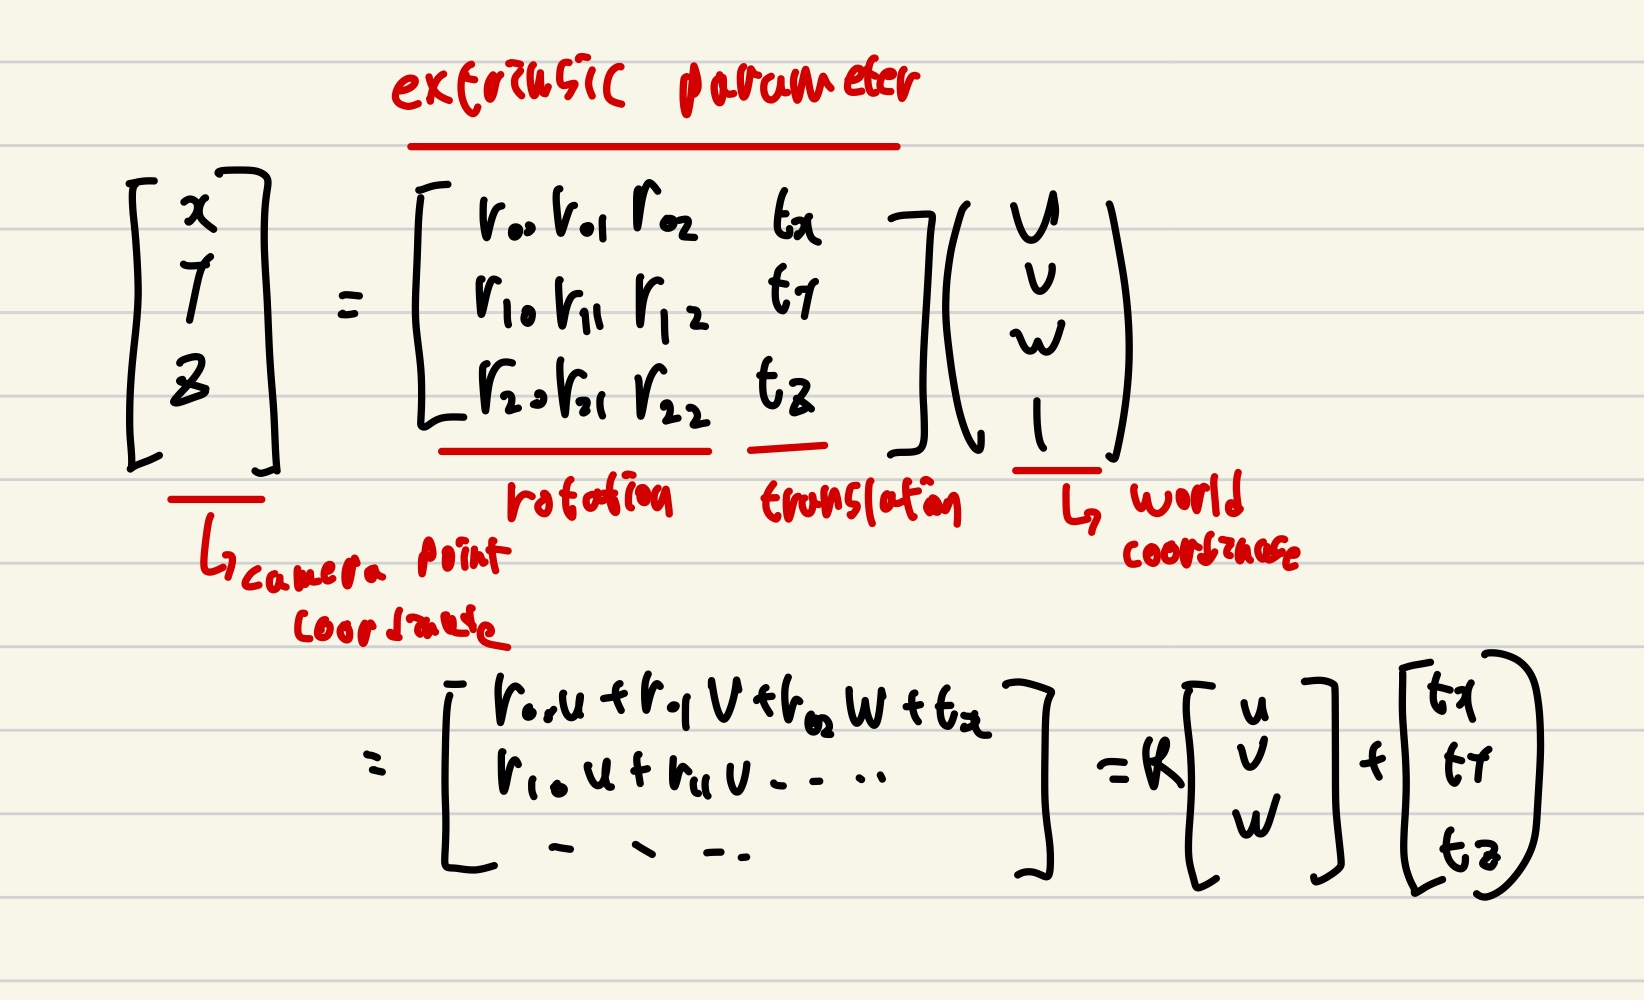 extrinsic parameter
[x y z] = [r00 r01 r02 tx
r10 r11 r12 ty
r20 r21 r22 tz] (U V W 1)
rotation translation ↳ world coordinate
↳ camera point coordinate
= [r00u + r01V + r02W + tx
r10u + r11v - - - -
- - - -] = R [u v w] + [tx ty tz]